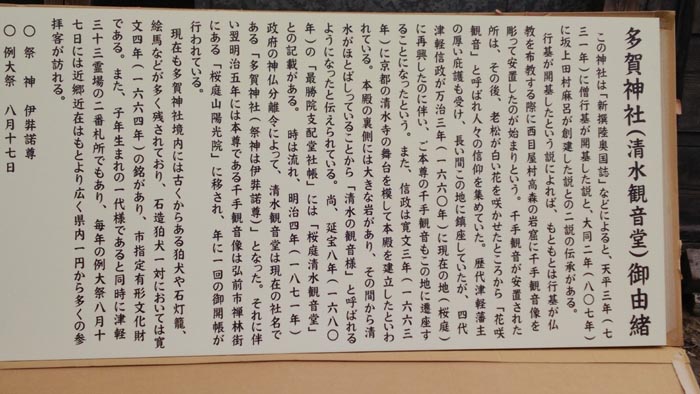 多賀神社(清水観音堂)御由緒
この神社は「新撰陸奥国誌」などによると、天平三年(七
三一年)に僧行基が開基した説と、大同二年(八〇七年)
に坂上田村麻呂が創建した説との二説の伝承がある。
行基が開基したという説によれば、もともとは行基が仏
教を布教する際に西目屋村高森の岩窟に千手観音像を
彫って安置したのが始まりという。千手観音が安置された
所は、その後、老松が白い花を咲かせたところから「花咲
観音」と呼ばれ人々の信仰を集めていた。歴代津軽藩主
の厚い庇護も受け、長い間この地に鎮座していたが、四代
津軽信政が万治三年(一六六〇年)に現在の地(桜庭)
に再興したのに伴い、ご本尊の千手観音もこの地に遷座す
ることになったという。また、信政は寛文三年(一六六三
年)に京都の清水寺の舞台を模して本殿を建立したといわ
れている。本殿の裏側には大きな岩があり、その間から清
水がほとばしっていることから「清水の観音様」と呼ばれる
ようになったと伝えられている。尚、延宝八年(一六八〇
年)の「最勝院支配堂社帳」には「桜庭清水観音堂」
との記載がある。時は流れ、明治四年(一八七一年)
政府の神仏分離令によって、清水観音堂は現在の社名で
ある「多賀神社(祭神は伊弉諾尊)」となった。それに伴
い翌明治五年には本尊である千手観音像は弘前市禅林街
にある「桜庭山陽光院」に移され、年に一回の御開帳が
行われている。
現在も多賀神社境内には古くからある狛犬や石灯籠、
絵馬などが多く残されており、石造狛犬一対においては寛
文四年(一六六四年)の銘があり、市指定有形文化財
である。また、子年生まれの一代様であると同時に津軽
三十三霊場の二番札所でもあり、毎年の例大祭八月十
七日には近郷近在はもとより広く県内一円から多くの参
拝客が訪れる。
〇 祭 神 伊弉諾尊
〇 例大祭 八月十七日